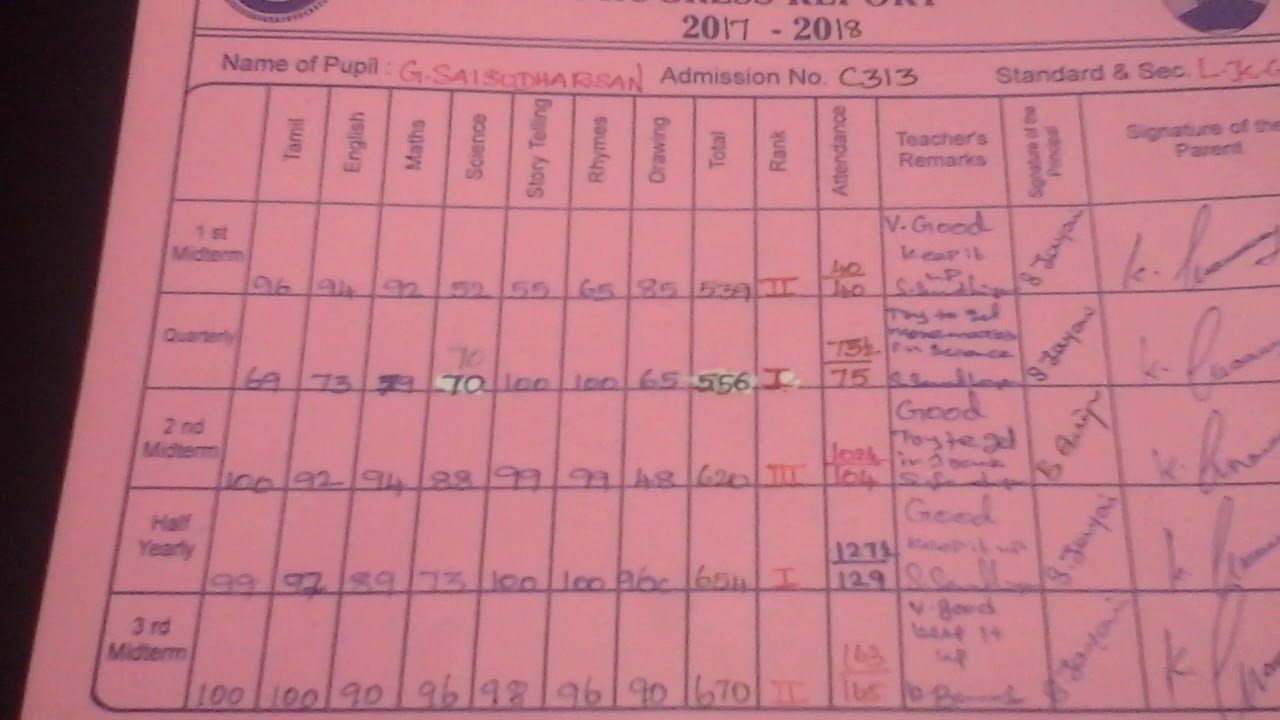 PROGRESS REPORT
2017 - 2018
Name of Pupil : G.SAISUDHARSAN Admission No. C313 Standard & Sec. L.K.G
Tamil English Maths Science Story Telling Rhymes Drawing Total Rank Attendance Teacher's Remarks Signature of the Principal Signature of the Parent
1 st Midterm 96 94 92 52 55 65 85 539 II 40/40 V. Good Keep it up
Quarterly 69 73 79 70 70 100 100 65 556 I 73½/75 Try to get more marks in Science
2 nd Midterm 100 92 94 88 99 99 48 620 III 102½/104 Good Try to get
Half Yearly 99 97 89 73 100 100 96 654 I 127½/129 Good Keep it up
3 rd Midterm 100 100 90 96 98 96 90 670 II 163/165 V. Good keep it up